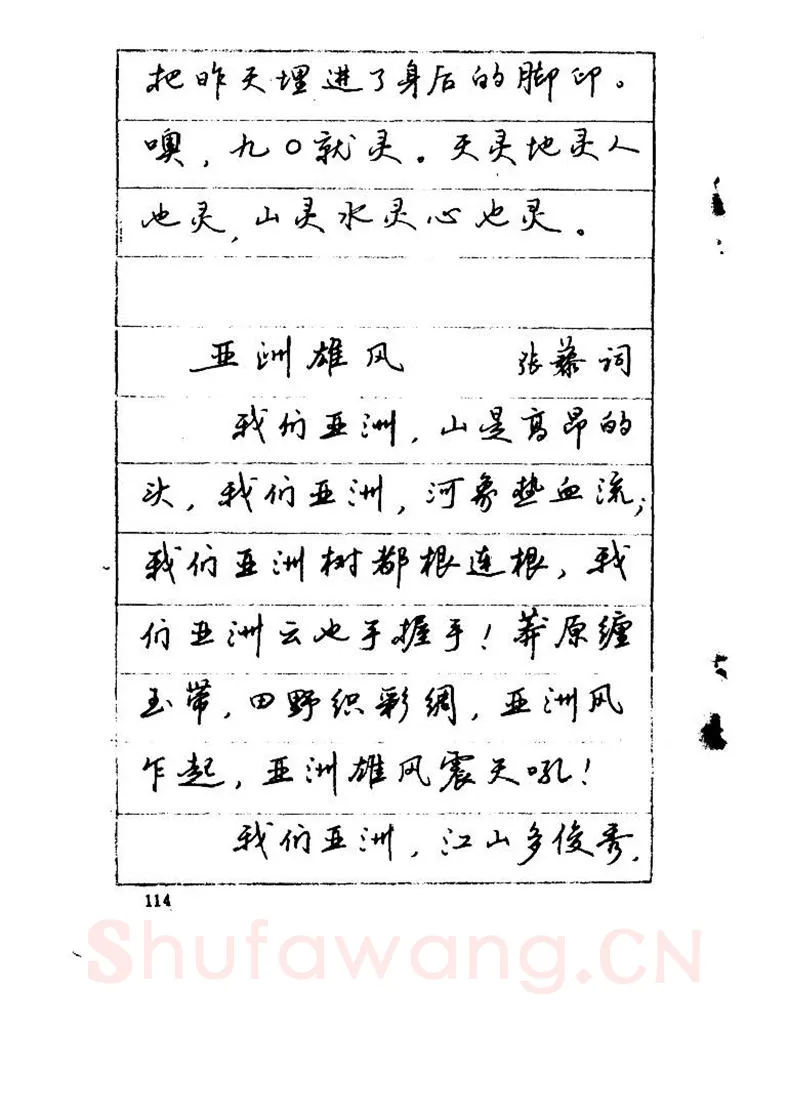 把昨天埋进了身后的脚印。
噢，九〇就灵。天灵地灵人
也灵，山灵水灵心也灵。
亚洲雄风 张藜词
我们亚洲，山是高昂的
头，我们亚洲，河象热血流；
我们亚洲树都根连根，我
们亚洲云也手握手！莽原缠
玉带，田野织彩绸，亚洲风
乍起，亚洲雄风震天吼！
我们亚洲，江山多俊秀，
114
Shufawang.CN